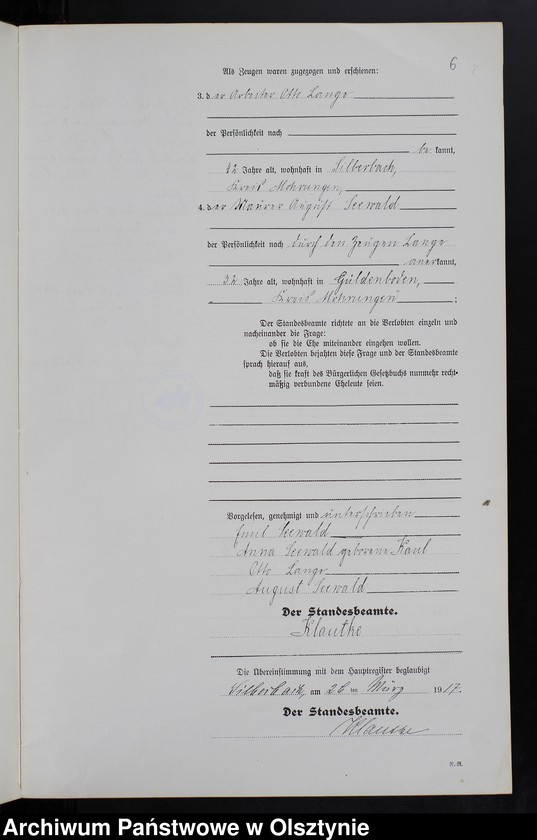 6
Als Zeugen waren zugezogen und erschienen:
3. der Arbeiter Otto Lange
der Persönlichkeit nach
be kannt,
42 Jahre alt, wohnhaft in Silberbach,
Kreis Mohrungen,
4. der Maurer August Seewald
der Persönlichkeit nach durch den Zeugen Lange
anerkannt,
32 Jahre alt, wohnhaft in Güldenboden,
Kreis Mohrungen ;
Der Standesbeamte richtete an die Verlobten einzeln und
nacheinander die Frage:
ob sie die Ehe miteinander eingehen wollen.
Die Verlobten bejahten diese Frage und der Standesbeamte
sprach hierauf aus,
daß sie kraft des Bürgerlichen Gesetzbuchs nunmehr recht-
mäßig verbundene Eheleute seien.
Vorgelesen, genehmigt und unterschrieben
Emil Seewald
Anna Seewald geborene Kaul
Otto Lange
August Seewald
Der Standesbeamte.
Klautke
Die Übereinstimmung mit dem Hauptregister beglaubigt
Silberbach, am 26 ten März 1917.
Der Standesbeamte.
Klautke
Archiwum Państwowe w Olsztynie